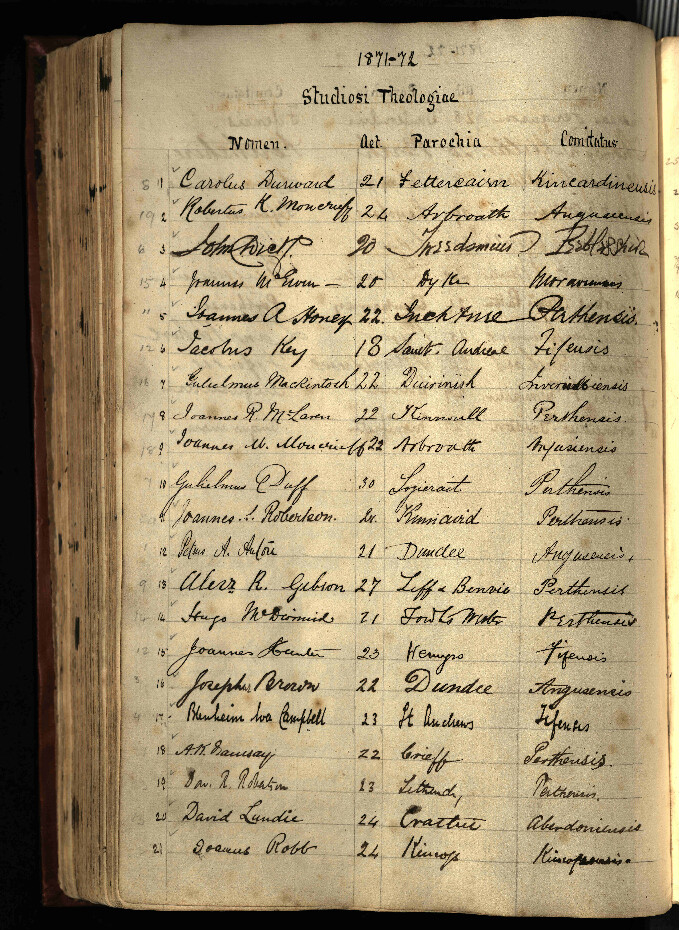 1871-72
Studiosi Theologiae
Nomen. Aet. Parochia Comitatus
1 Carolus Durward 21 Fettercairn Kincardinensis
2 Robertus K. Moncrieff 24 Arbroath Angusensis
3 John Dick 20 Tweedsmuir Peebleshire
4 Joannes McEwen 20 Dyke
5 Joannes A Honey 22. Inchture Perthensis.
6 Jacobus Key 18 Sanct. Andreae Fifensis
7 Gulielmus Mackintosh 22 Duirinish
8 Joannes R. McLaren 22 Kinnoull Perthensis.
9 Joannes W. Moncrieff 22 Arbroath
10 Gulielmus Duff 30 Logierait Perthensis
11 Joannes Robertson. Kinnaird Perthensis
12 Petrus A. 21 Dundee Angusensis,
13 Alexr R. Gibson 27 Liff & Benvie Perthensis
14 Hugo McDiarmid 21 Fowlis Wester Perthensis
15 Joannes Hunter 23 Wemyss Fifensis
16 Josephus Brown 22 Dundee Angusensis
17 Blenheim Campbell 23 St Andrews Fifensis
18 A.K. Ramsay 22 Crieff Perthensis.
19 Dav. R. Robertson 23 Perthensis.
20 David Lundie 24 Crathie Aberdoniensis
21 Joannes Robb 24 Kinross